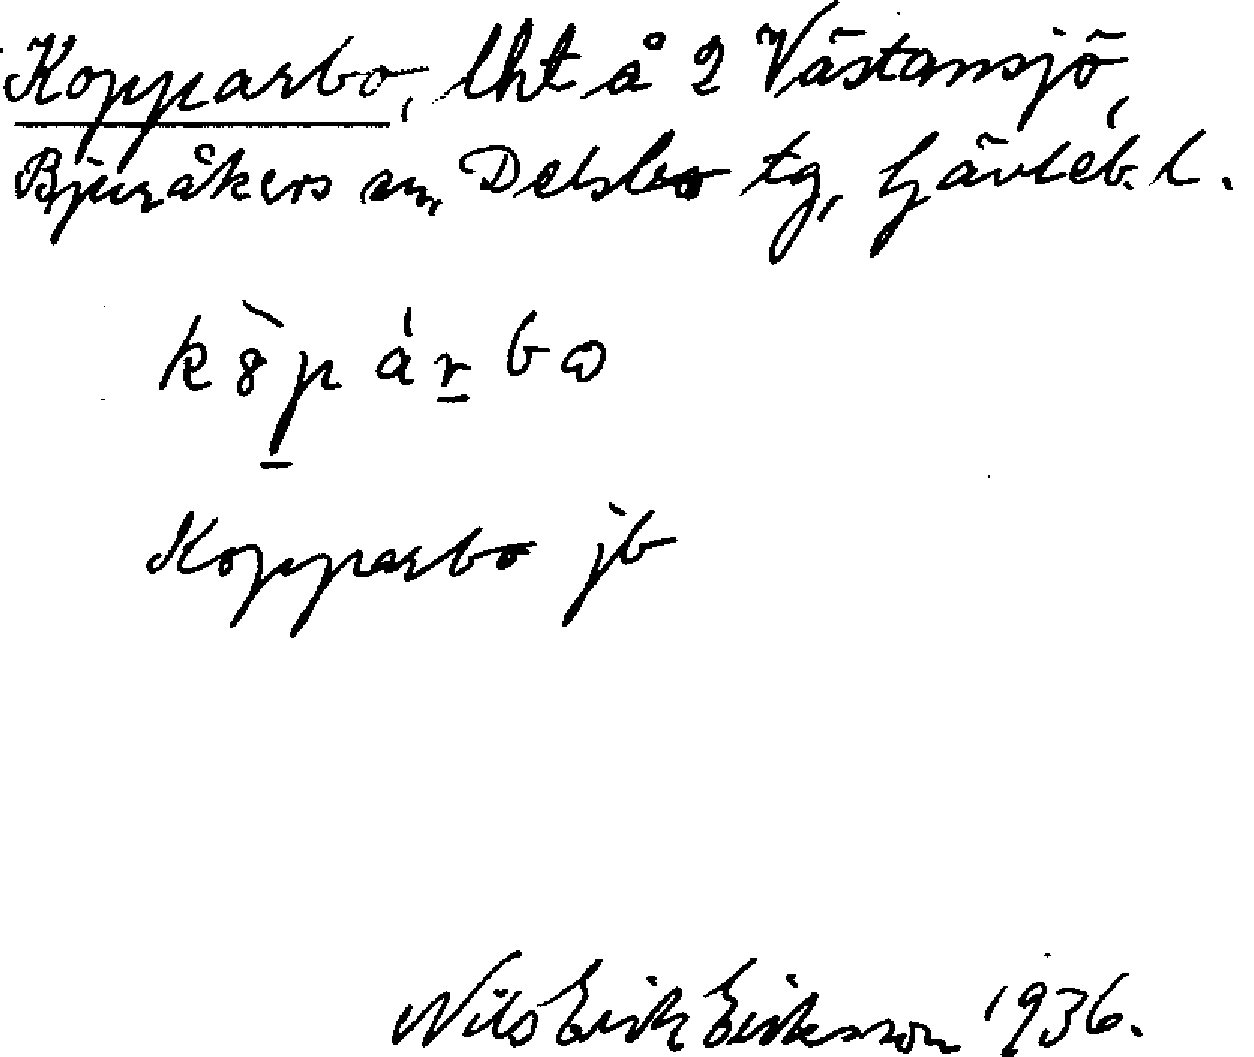 Kopparbo, lht å 2 Västansjö,
Bjuråkers sn, Delsbo tg, Gävleb. l.
Kopparbo jb
Nils Erik Eriksson 1936.